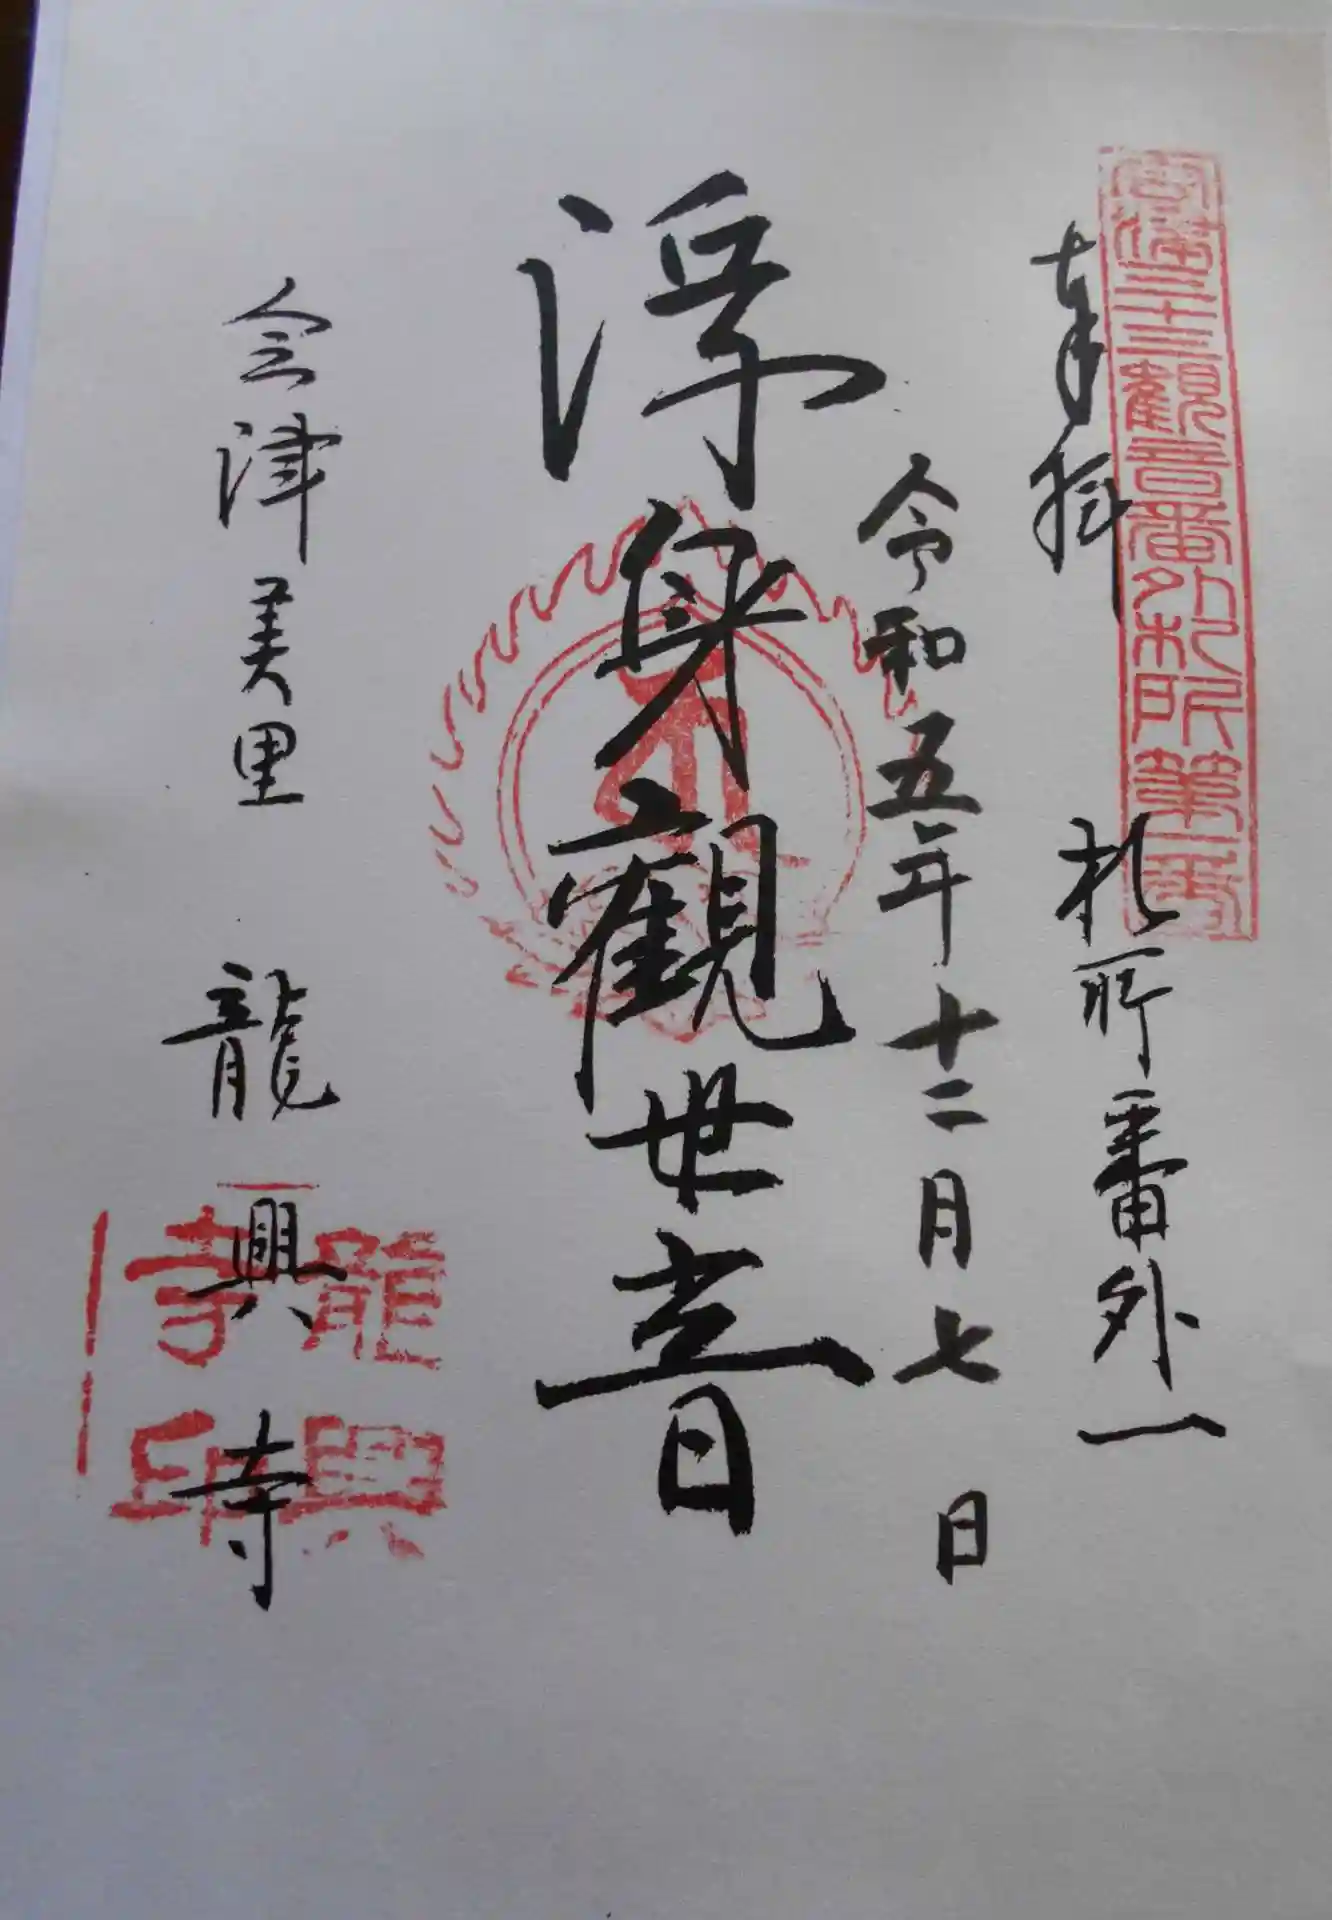 奉拝
會津三十三觀音番外札所第一番
札所番外一
令和五年十二月七日
浮身觀世音
会津美里 龍興寺
龍興寺印